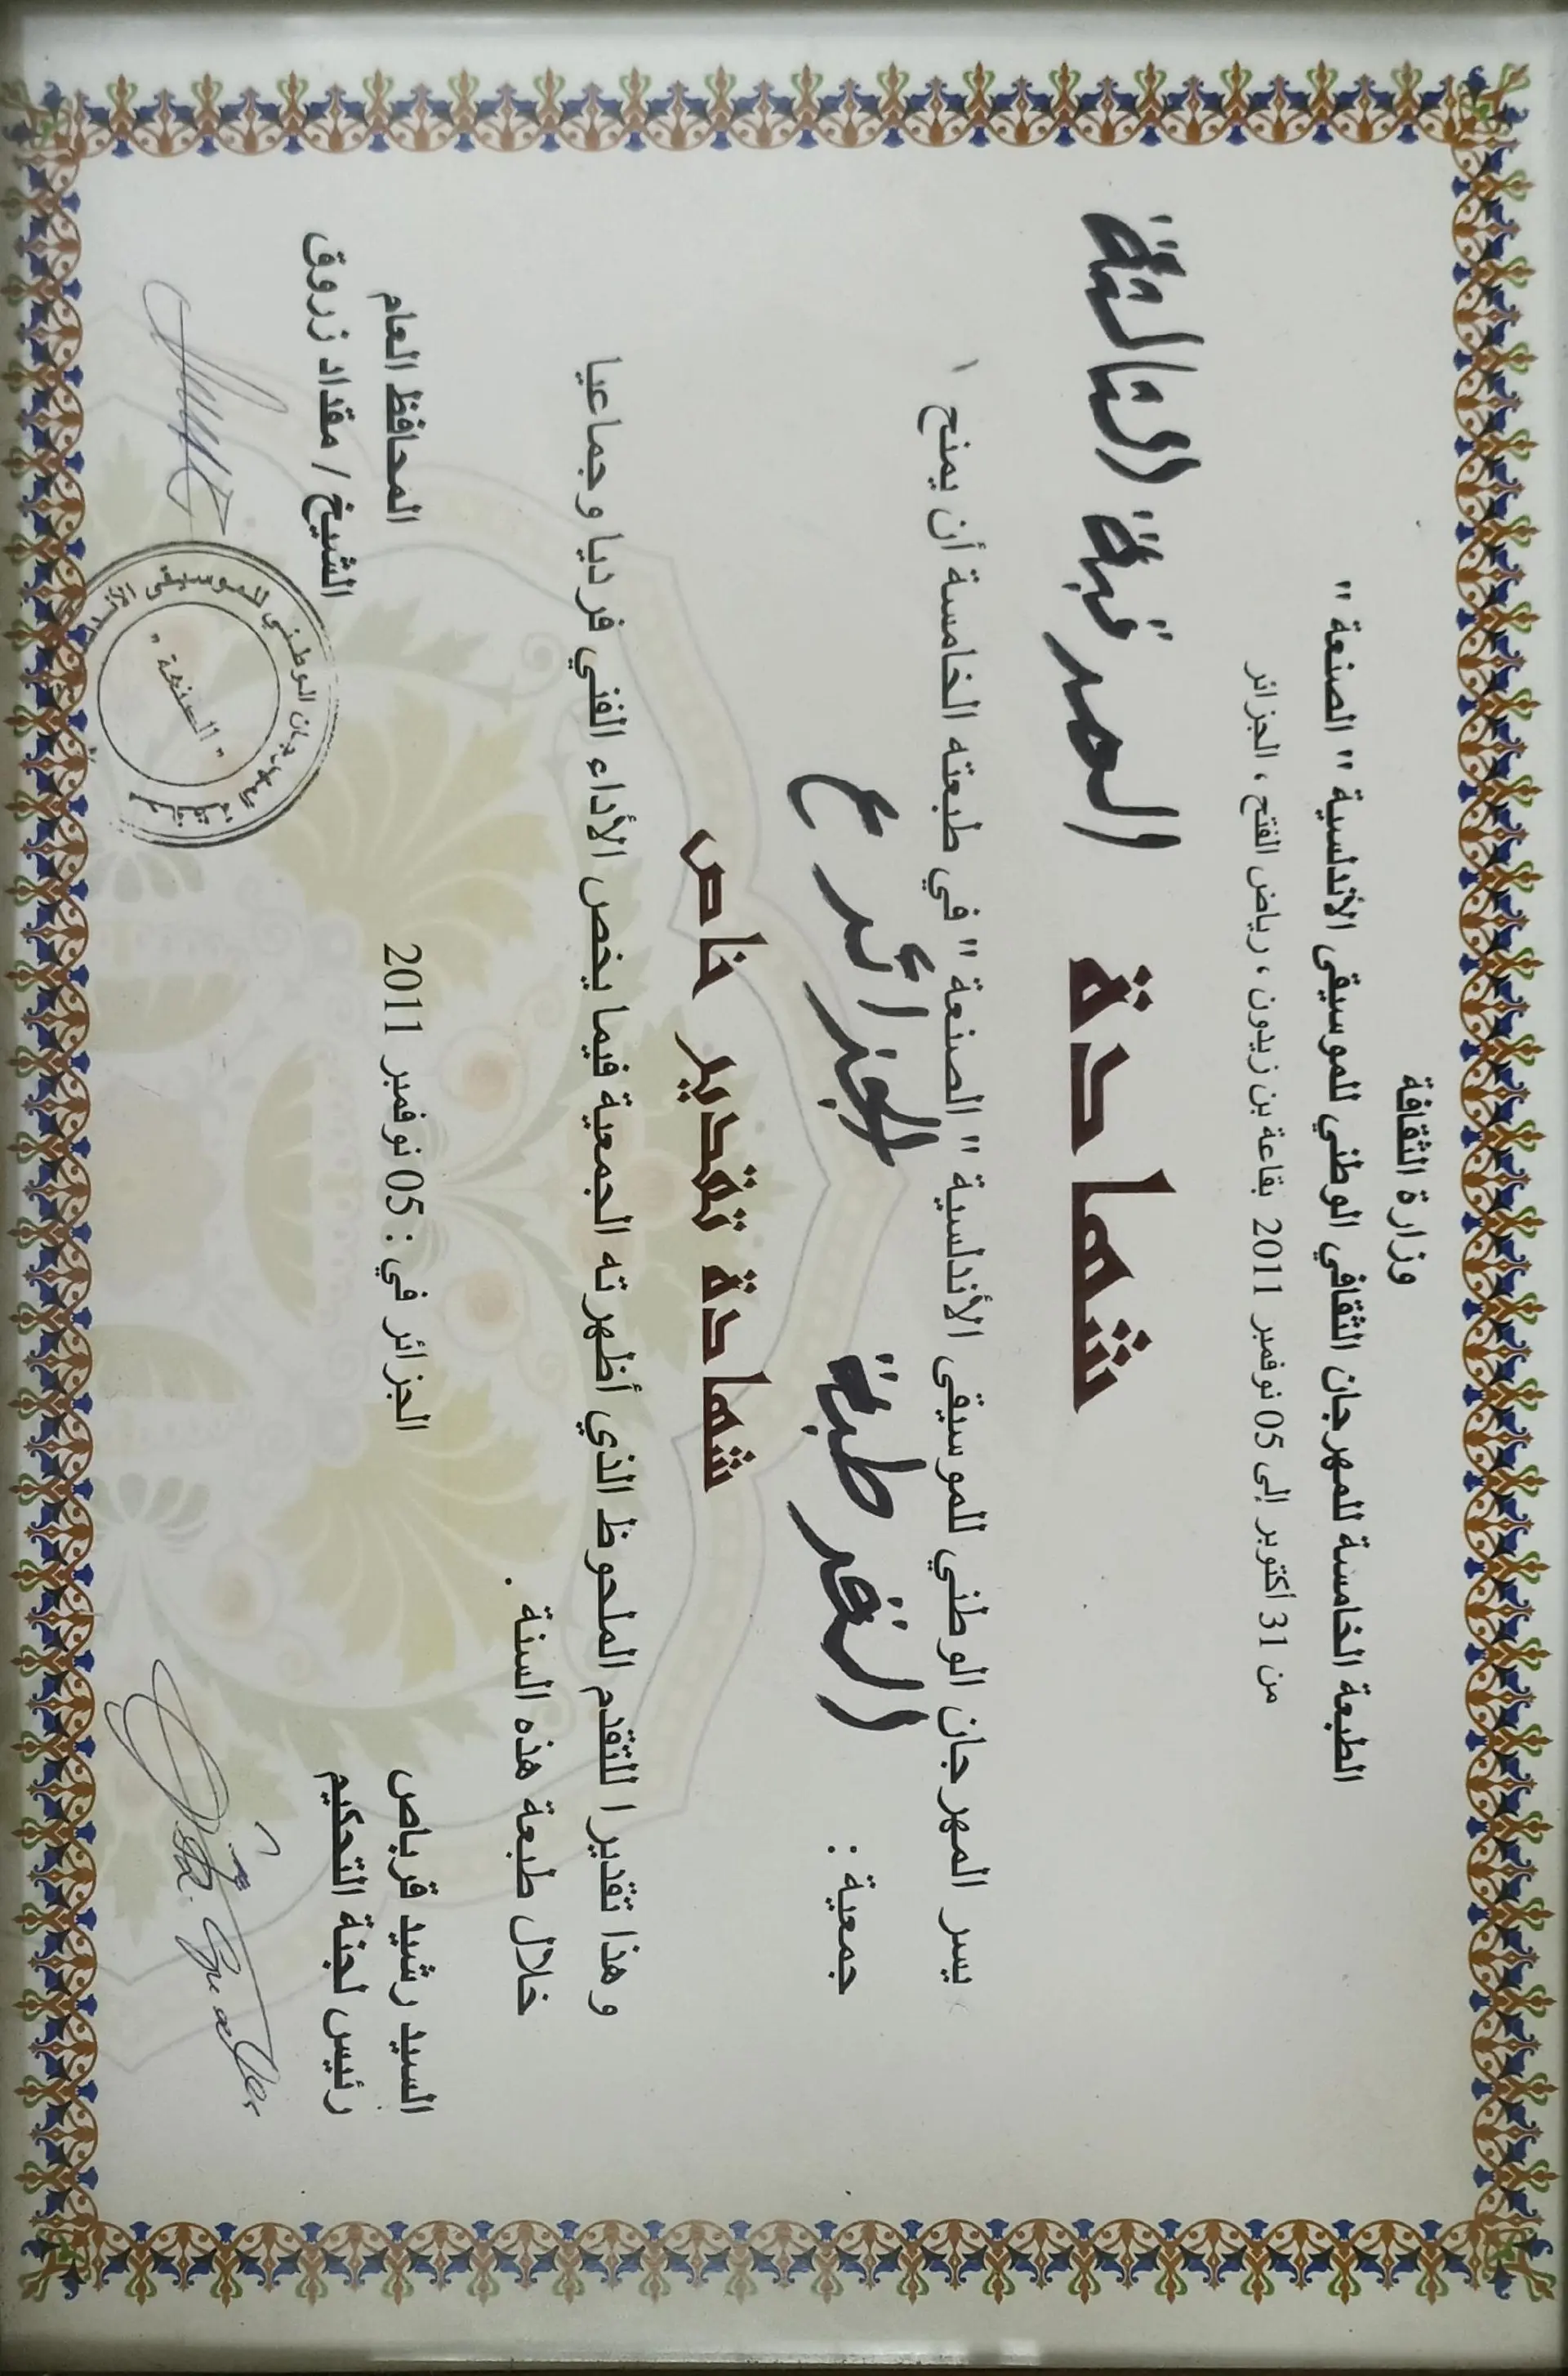 وزارة الثقافة
الطبعة الخامسة للمهرجان الثقافي الوطني للموسيقى الأندلسية " الصنعة "
من 31 أكتوبر إلى 05 نوفمبر 2011 بقاعة بن زيدون ، رياض الفتح ، الجزائر
شهادة المرتبة الثالثة
يسر المهرجان الوطني للموسيقى الأندلسية " الصنعة " في طبعته الخامسة أن يمنح
جمعية : القرطبية الجزائر
شهادة تقدير خاص
وهذا تقديرا للتقدم الملحوظ الذي أظهرته الجمعية فيما يخص الأداء الفني فرديا وجماعيا
خلال طبعة هذه السنة .
الجزائر في : 05 نوفمبر 2011
السيد رشيد قرباص
رئيس لجنة التحكيم
المحافظ العام
الشيخ / مقداد زروق
" الصنعة "